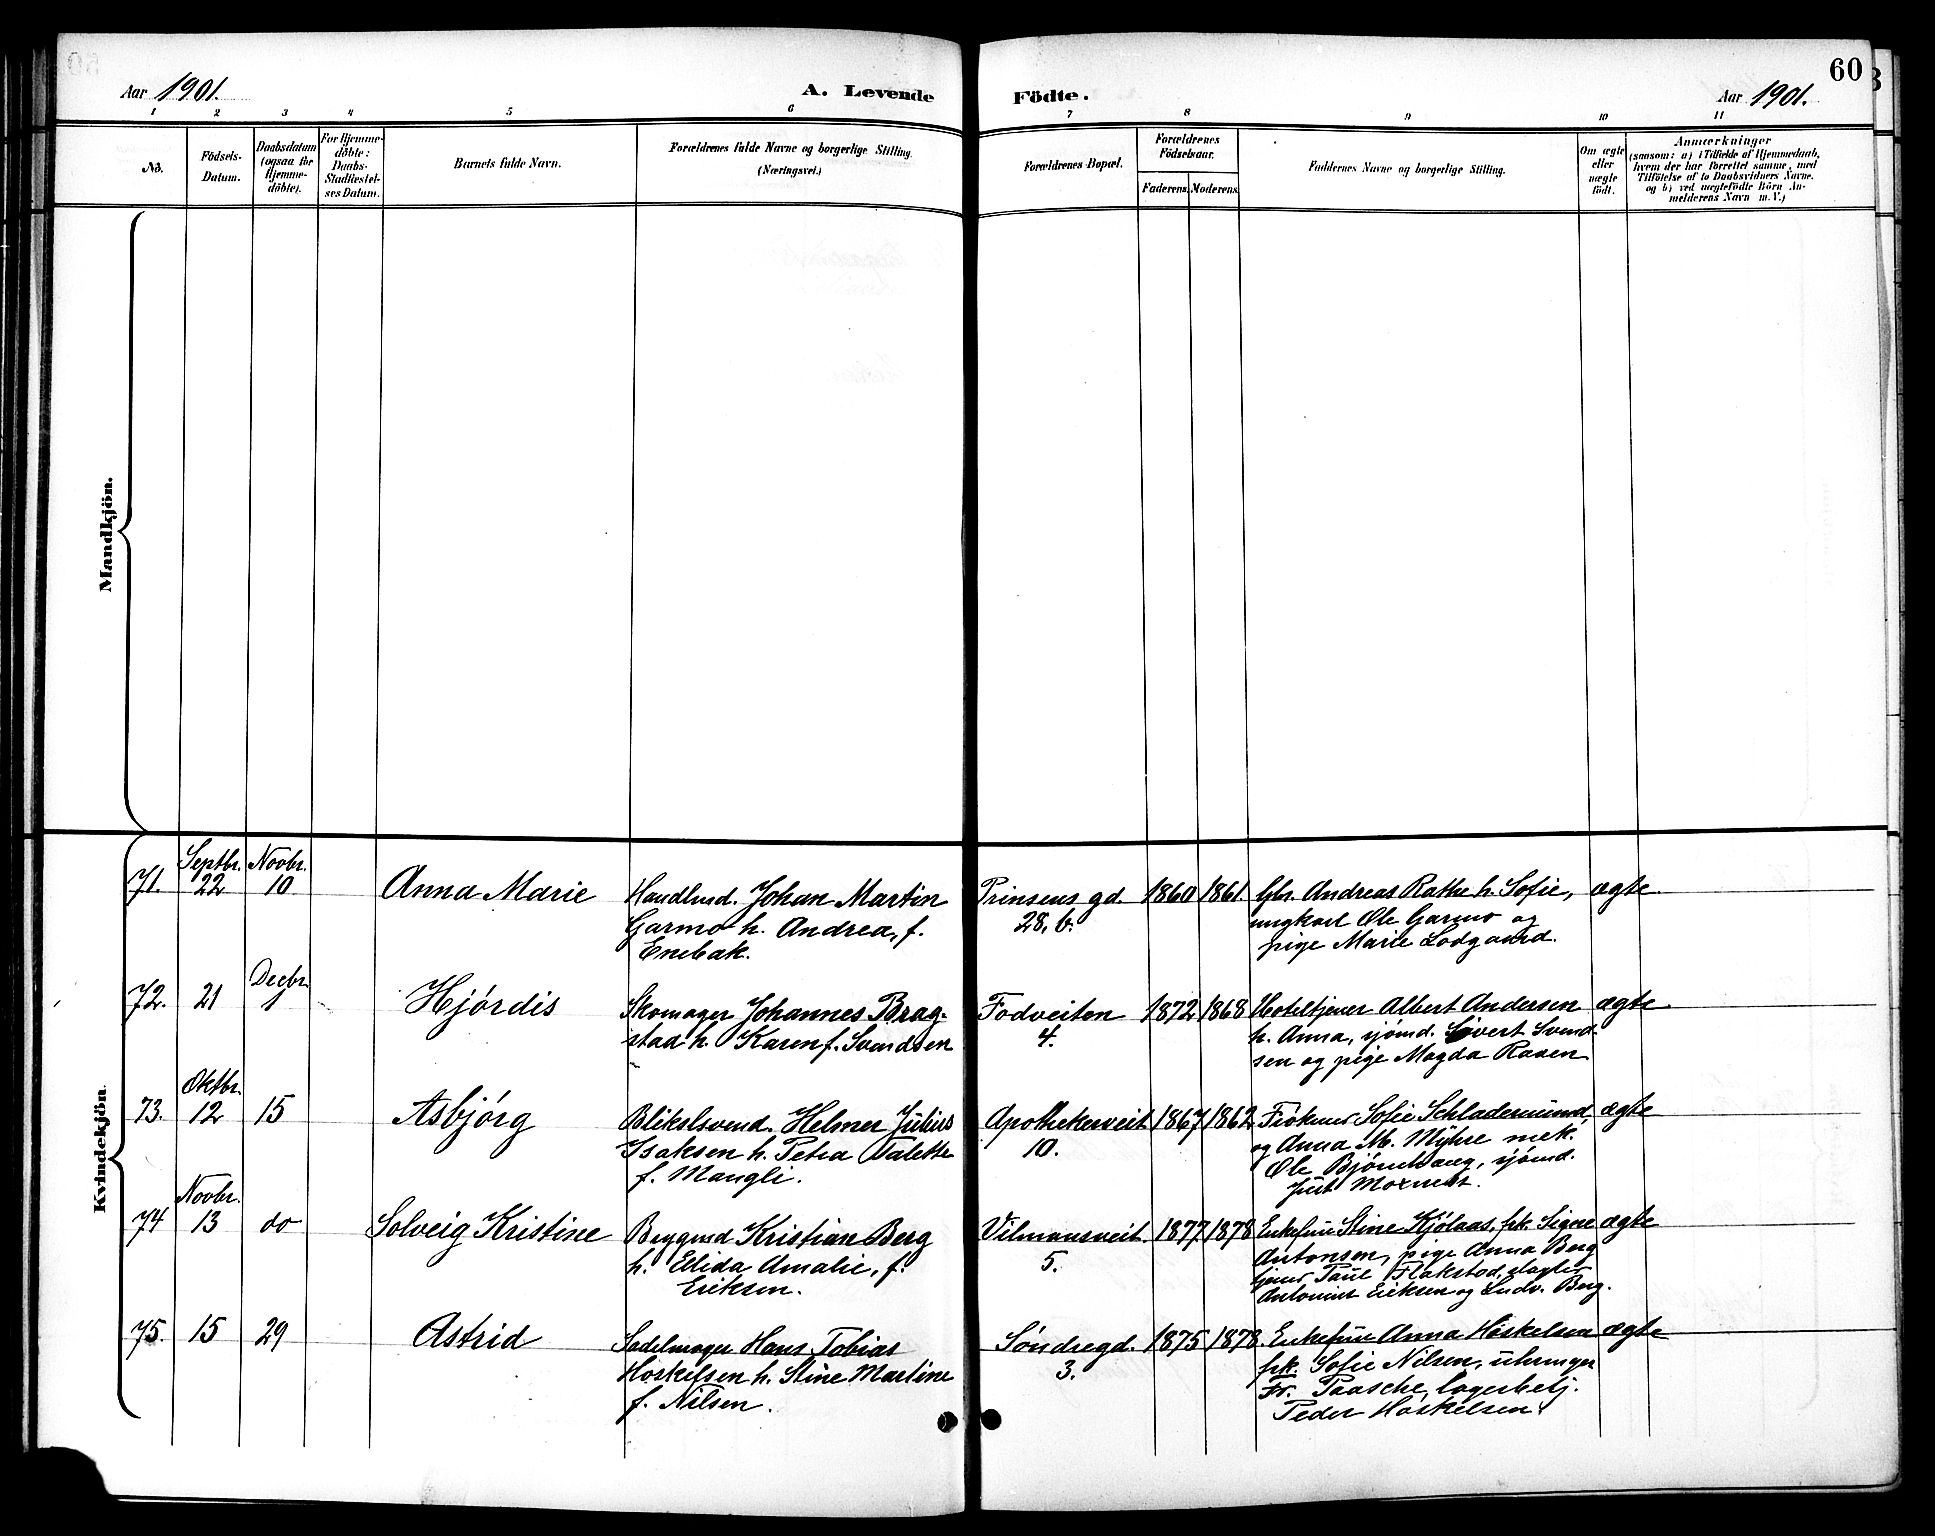 Aar 1901.
A. Levende
Födte.
Aar 1901.
60
1 2 3 4 5 6 7 8 9 10 11
No.
Födsels-
Datum.
Daabsdatum
(ogsaa for
Hjemme-
döbte).
For Hjemme-
döbte:
Daabs-
Stadfæstel-
ses Datum.
Barnets fulde Navn.
Forældrenes fulde Navne og borgerlige Stilling.
(Næringsvei.)
Forældrenes Bopæl.
Forældrenes
Födselsaar.
Faderens. Moderens.
Faddernes Navne og borgerlige Stilling.
Om ægte
eller
uægte
födt.
Anmærkninger
(saasom: a) i Tilfælde af Hjemmedaab,
hvem der har forrettet samme, med
Tilföielse af to Daabsvidners Navne,
og b) ved uægtefödte Börn An-
melderens Navn m.V.)
Mandkjön.
Kvindekjön.
71.
Septbr.
22
Novbr.
10
Anna Marie
Handlmd. Johan Martin
Garmo h. Andrea, f.
Enebak.
Prinsens gd.
28, b.
1860
1861.
Gbr. Andreas Rathe h. Sofie,
ungkarl Ole Garmo og
pige Marie Lodgaard.
ægte
72.
21
Decbr.
1
Hjórdis
Skomager Johannes Brag-
stad h. Karen f. Svendsen
Fodveiten
4.
1872
1868
Hoteltjener Albert Andersen
h. Anna, sjómd. Sivert Svend-
sen og pige Magda Raven
ægte
73.
Oktbr.
12
15
Asbjórg
Blikslsvend. Helmer Julius
Isaksen h. Petra Valette
f. Mangli.
Apothekerveit
10.
1867
1862
Frókener Sofie Schladermund,
og Anna M. Myhre mek.
Ole Bjórnhaug, sjómd.
ægte
74
Novbr.
13
do
Solveig Kristine
Brygmd Kristian Berg
h. Elida Amalie, f.
Eriksen.
Vilmansveit.
5.
1877
1878
Enkefrue Stine Kjólaas, frk. Signe
Antonsen, pige Anna Berg
tjener Paul Flakstad, slagter
Antonius Eriksen og Ludv. Berg.
ægte
75.
15
29
Astrid
Sadelmager Hans Tobias
Hoskelsen h. Stine Martine
f. Nilsen.
Sóndregd.
3.
1875
1878.
Enkefrue Anna Hoskelsen
frk. Sofie Nilsen, uhrmager
Fr. Paasche, lagerbetj.
Peder Hoskelsen.
ægte